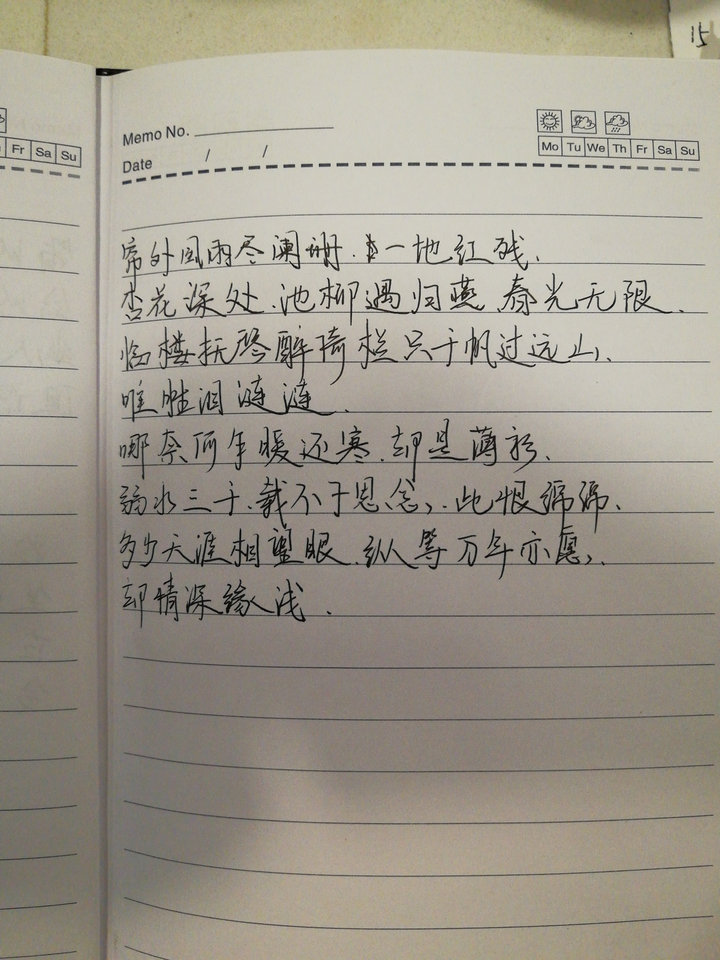 15
Memo No.
Date / /
Mo Tu We Th Fr Sa Su
Fr Sa Su
帘外风雨尽阑珊.一地红残.
杏花深处.池柳遇归燕.春光无限.
临楼抚琴醉倚栏只千帆过远山.
唯泪涟涟.
哪奈何年暖还寒.却是薄衫.
弱水三千.载不于思念.此恨绵绵.
多少天涯相望眼.纵等万年亦愿.
却情深缘浅.